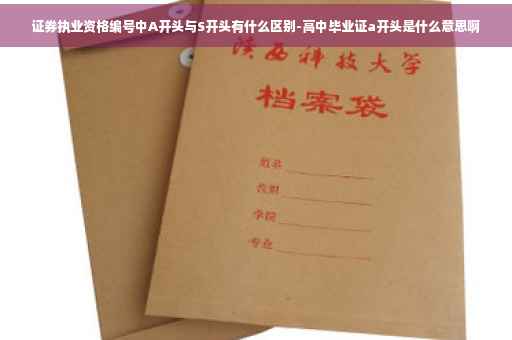 证券执业资格编号中A开头与S开头有什么区别-高中毕业证a开头是什么意思啊
陕西科技大学
档案袋
姓名
学院
专业